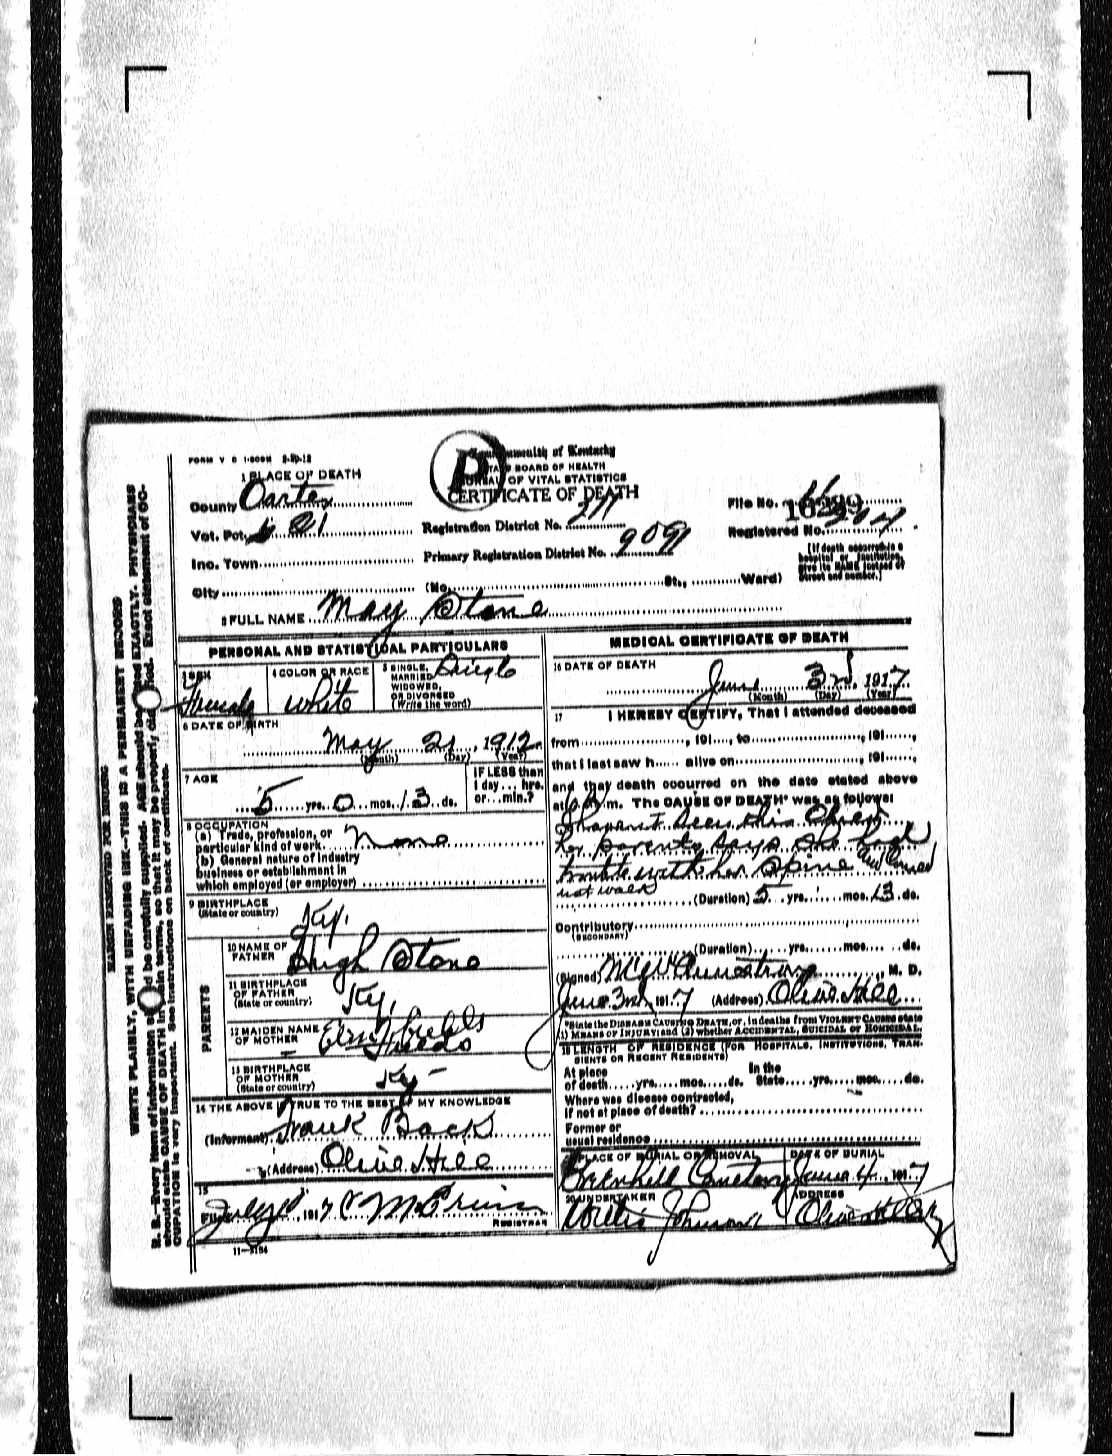 FORM V S 1-50OM 8-20-12
Commonwealth of Kentucky
STATE BOARD OF HEALTH
BUREAU OF VITAL STATISTICS
CERTIFICATE OF DEATH
1 PLACE OF DEATH
County Carter
Vot. Pct. 21
Inc. Town
City (No. St., Ward)
Registration District No. 211
Primary Registration District No. 9091
File No. 16299
Registered No.
[If death occurred in a hospital or institution, give its NAME instead of street and number.]
2 FULL NAME May Stone
PERSONAL AND STATISTICAL PARTICULARS
3 SEX
Female
4 COLOR OR RACE
white
5 SINGLE, MARRIED, WIDOWED, OR DIVORCED (Write the word)
Single
6 DATE OF BIRTH
May 21, 1912
(Month) (Day) (Year)
7 AGE
5 yrs. 0 mos. 13 ds.
IF LESS than 1 day... hrs. or... min.?
8 OCCUPATION
(a) Trade, profession, or
particular kind of work None
(b) General nature of industry
business or establishment in
which employed (or employer)
9 BIRTHPLACE
(State or country) Ky.
PARENTS
10 NAME OF FATHER Hugh Stone
11 BIRTHPLACE OF FATHER (State or country) Ky.
12 MAIDEN NAME OF MOTHER Fields
13 BIRTHPLACE OF MOTHER (State or country) Ky
14 THE ABOVE IS TRUE TO THE BEST OF MY KNOWLEDGE
(Informant) Frank Back
(Address) Olive Hill
15
Filed July 1917
REGISTRAR
11-3184
MEDICAL CERTIFICATE OF DEATH
16 DATE OF DEATH
June 3rd, 1917
(Month) (Day) (Year)
17 I HEREBY CERTIFY, That I attended deceased
from , 191 , to , 191 ,
that I last saw h alive on , 191 ,
and that death occurred on the date stated above
at m. The CAUSE OF DEATH* was as follows:
I havent seen this Child
her parents says she had
trouble with her Spine and could
not walk
(Duration) 5 yrs. mos. 13 ds.
Contributory
(SECONDARY)
(Duration) yrs. mos. ds.
(Signed) Armstrong, M. D.
June 3rd, 1917 (Address) Olive Hill
*State the DISEASE CAUSING DEATH, or, in deaths from VIOLENT CAUSES state
(1) MEANS OF INJURY; and (2) whether ACCIDENTAL, SUICIDAL or HOMICIDAL.
18 LENGTH OF RESIDENCE (FOR HOSPITALS, INSTITUTIONS, TRANSIENTS OR RECENT RESIDENTS)
At place of death yrs. mos. ds. In the State yrs. mos. ds.
Where was disease contracted,
if not at place of death?
Former or
usual residence
19 PLACE OF BURIAL OR REMOVAL
Cemetery
DATE OF BURIAL
June 4, 1917
20 UNDERTAKER
Willis Johnson
ADDRESS
Olive Hill Ky
MARGIN RESERVED FOR BINDING
WRITE PLAINLY, WITH UNFADING INK—THIS IS A PERMANENT RECORD
N. B.—Every item of information should be carefully supplied. AGE should be stated EXACTLY. PHYSICIANS
should state CAUSE OF DEATH in plain terms, so that it may be properly classified. Exact statement of OCCUPATION is very important. See instructions on back of certificate.